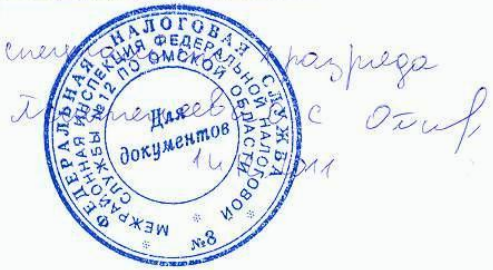 ФЕДЕРАЛЬНАЯ НАЛОГОВАЯ СЛУЖБА
МЕЖРАЙОННАЯ ИНСПЕКЦИЯ ФЕДЕРАЛЬНОЙ НАЛОГОВОЙ
СЛУЖБЫ №12 ПО ОМСКОЙ ОБЛАСТИ
Для
документов
№8
разряда